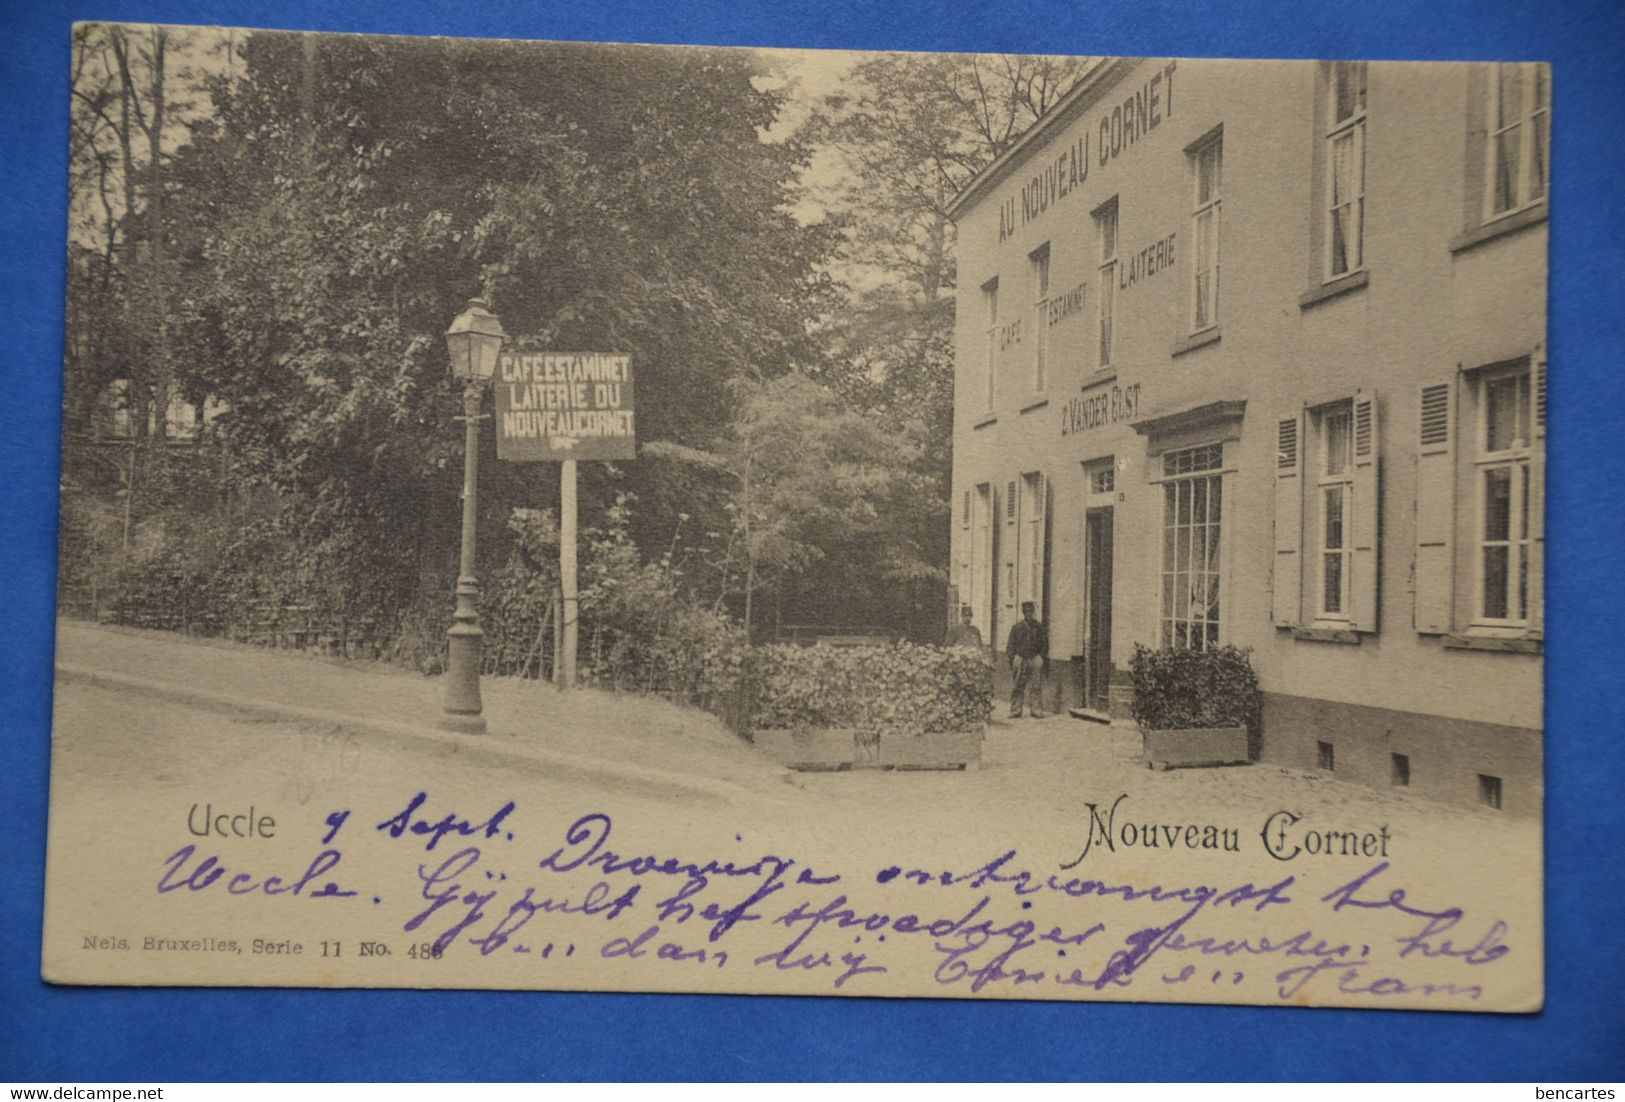 AU NOUVEAU CORNET
CAFÉ ESTAMINET LAITERIE
Z. VANDER ELST
CAFE ESTAMINET
LAITERIE DU
NOUVEAU CORNET
Uccle
Nouveau Cornet
9 Sept. Droevige ontvangst te
Uccle. Gij zult het spoediger gewezen heb
ben dan wij en Frans
Nels, Bruxelles, Serie 11 No. 486
bencartes